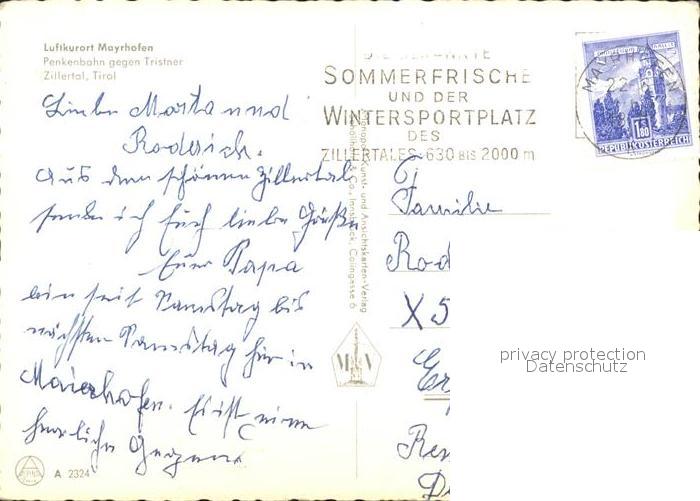 Luftkurort Mayrhofen
Penkenbahn gegen Tristner
Zillertal, Tirol
SOMMERFRISCHE
UND DER
WINTERSPORTPLATZ
DES
ZILLERTALES · 630 BIS 2000 m
MAYRHOFEN
22
1.80
REPUBLIK ÖSTERREICH
Liebe Marta und
Roderich.
Aus dem schönen Zillertal
sende ich Euch liebe Grüße
Euer Papa
bin seit Samstag bis
nächsten Samstag hier in
Maierhofen. Es ist eine
herrliche Gegend
Kunst- und Ansichtskarten-Verlag
& Co., Innsbruck, Colingasse 6
Familie
Rod
X5
Er
Re
A 2324
privacy protection
Datenschutz